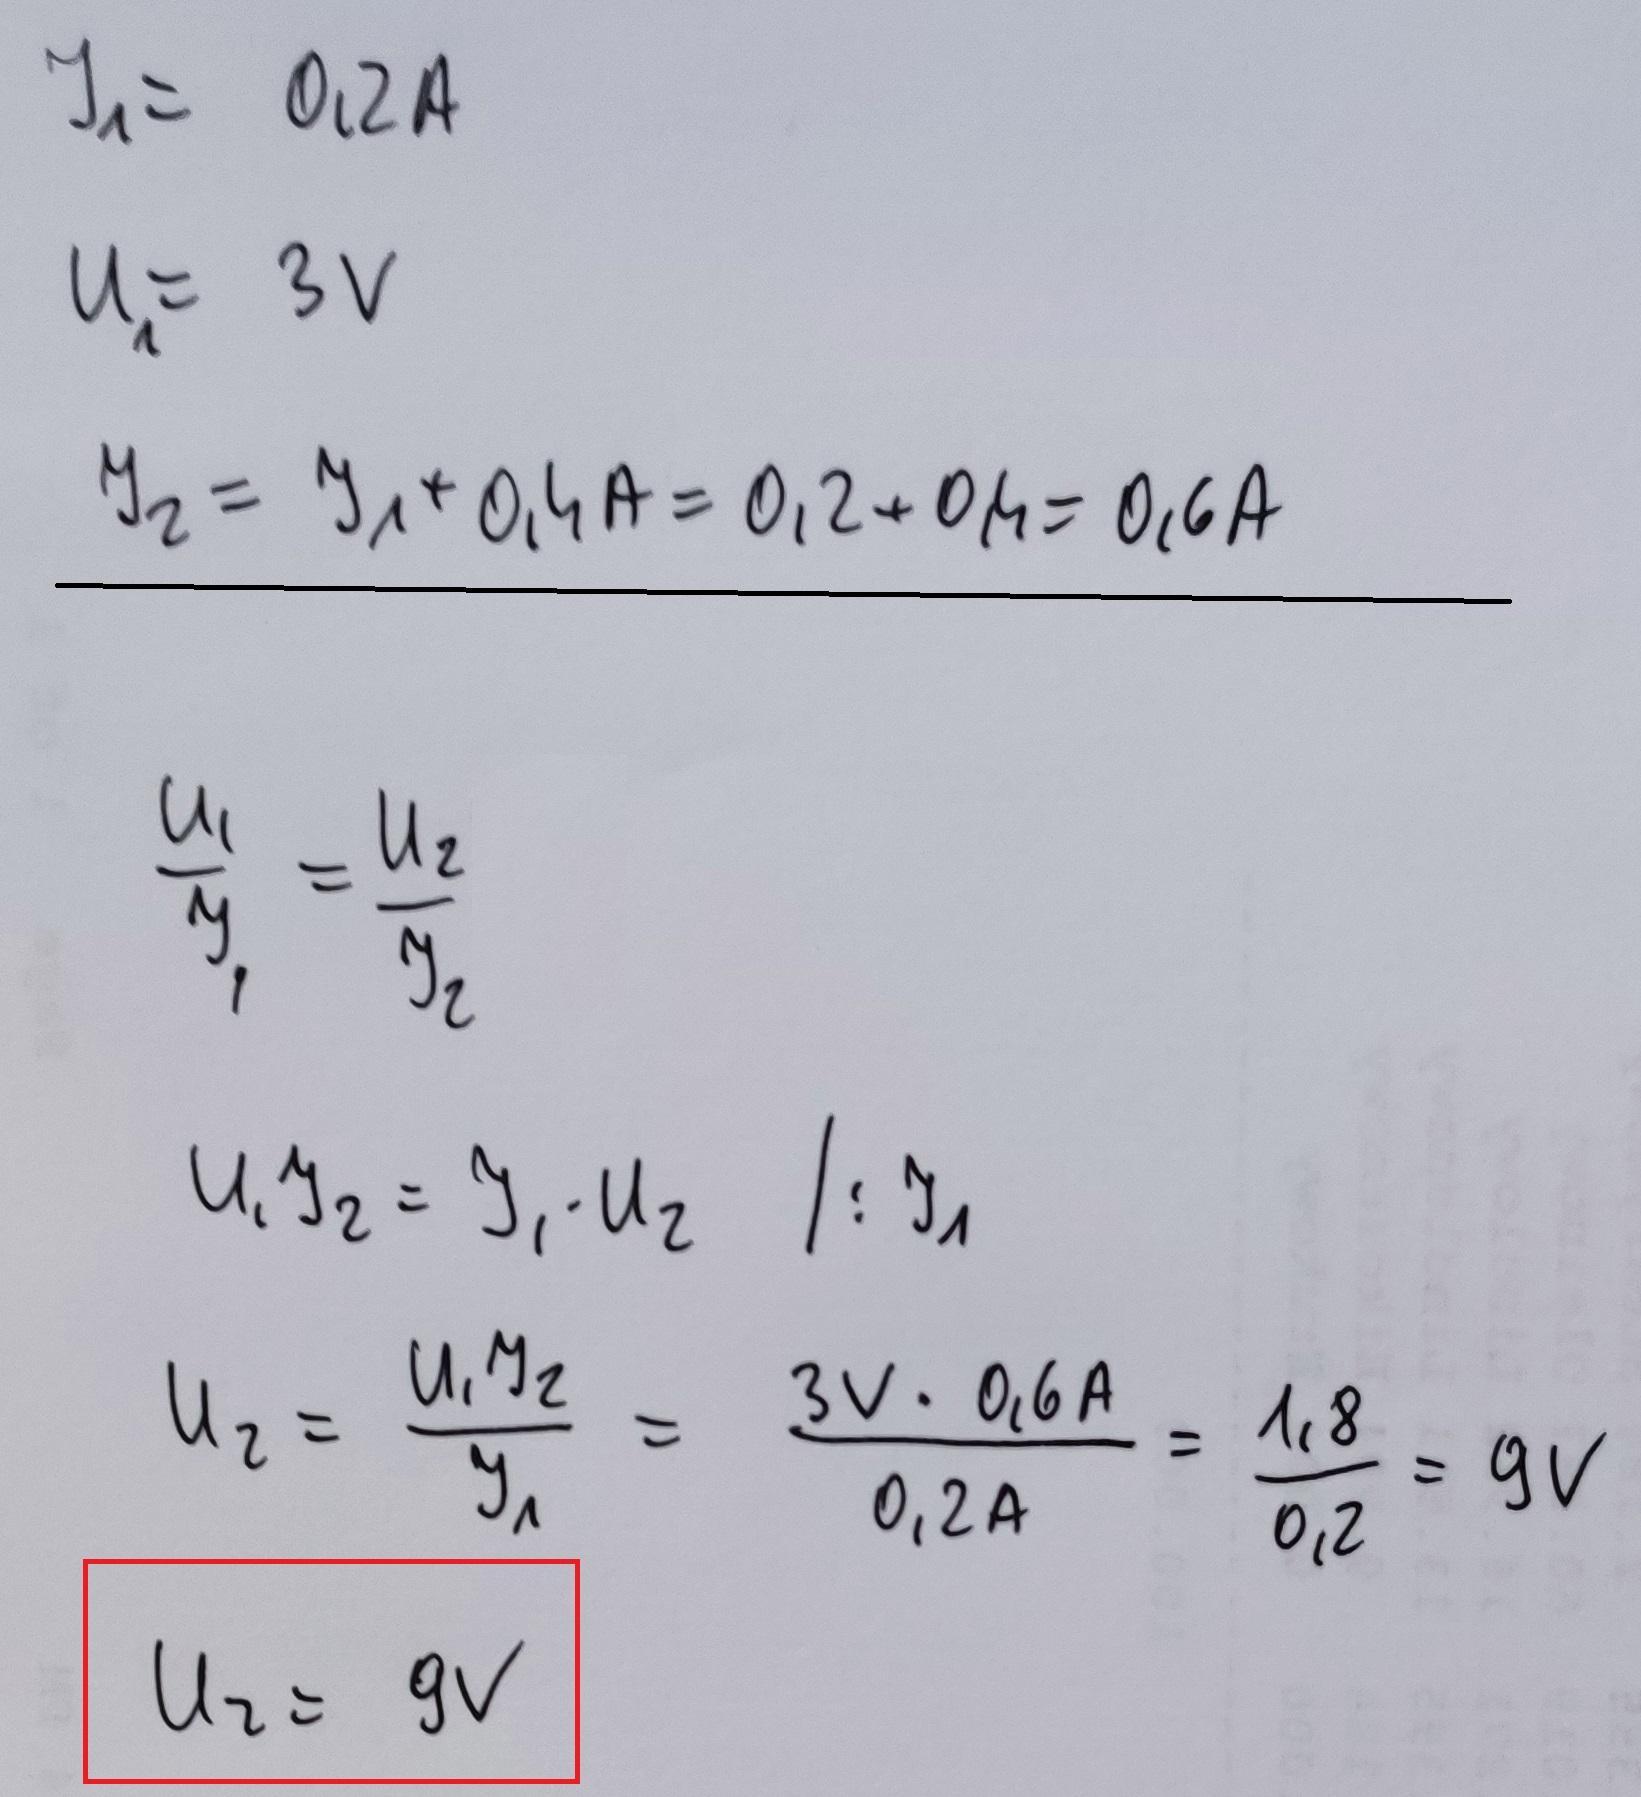 I₁ = 0,2A
U₁ = 3V
I₂ = I₁ + 0,4A = 0,2 + 0,4 = 0,6A
U₁/I₁ = U₂/I₂
U₁I₂ = I₁·U₂ /: I₁
U₂ = U₁I₂/I₁ = 3V · 0,6A/0,2A = 1,8/0,2 = 9V
U₂ = 9V